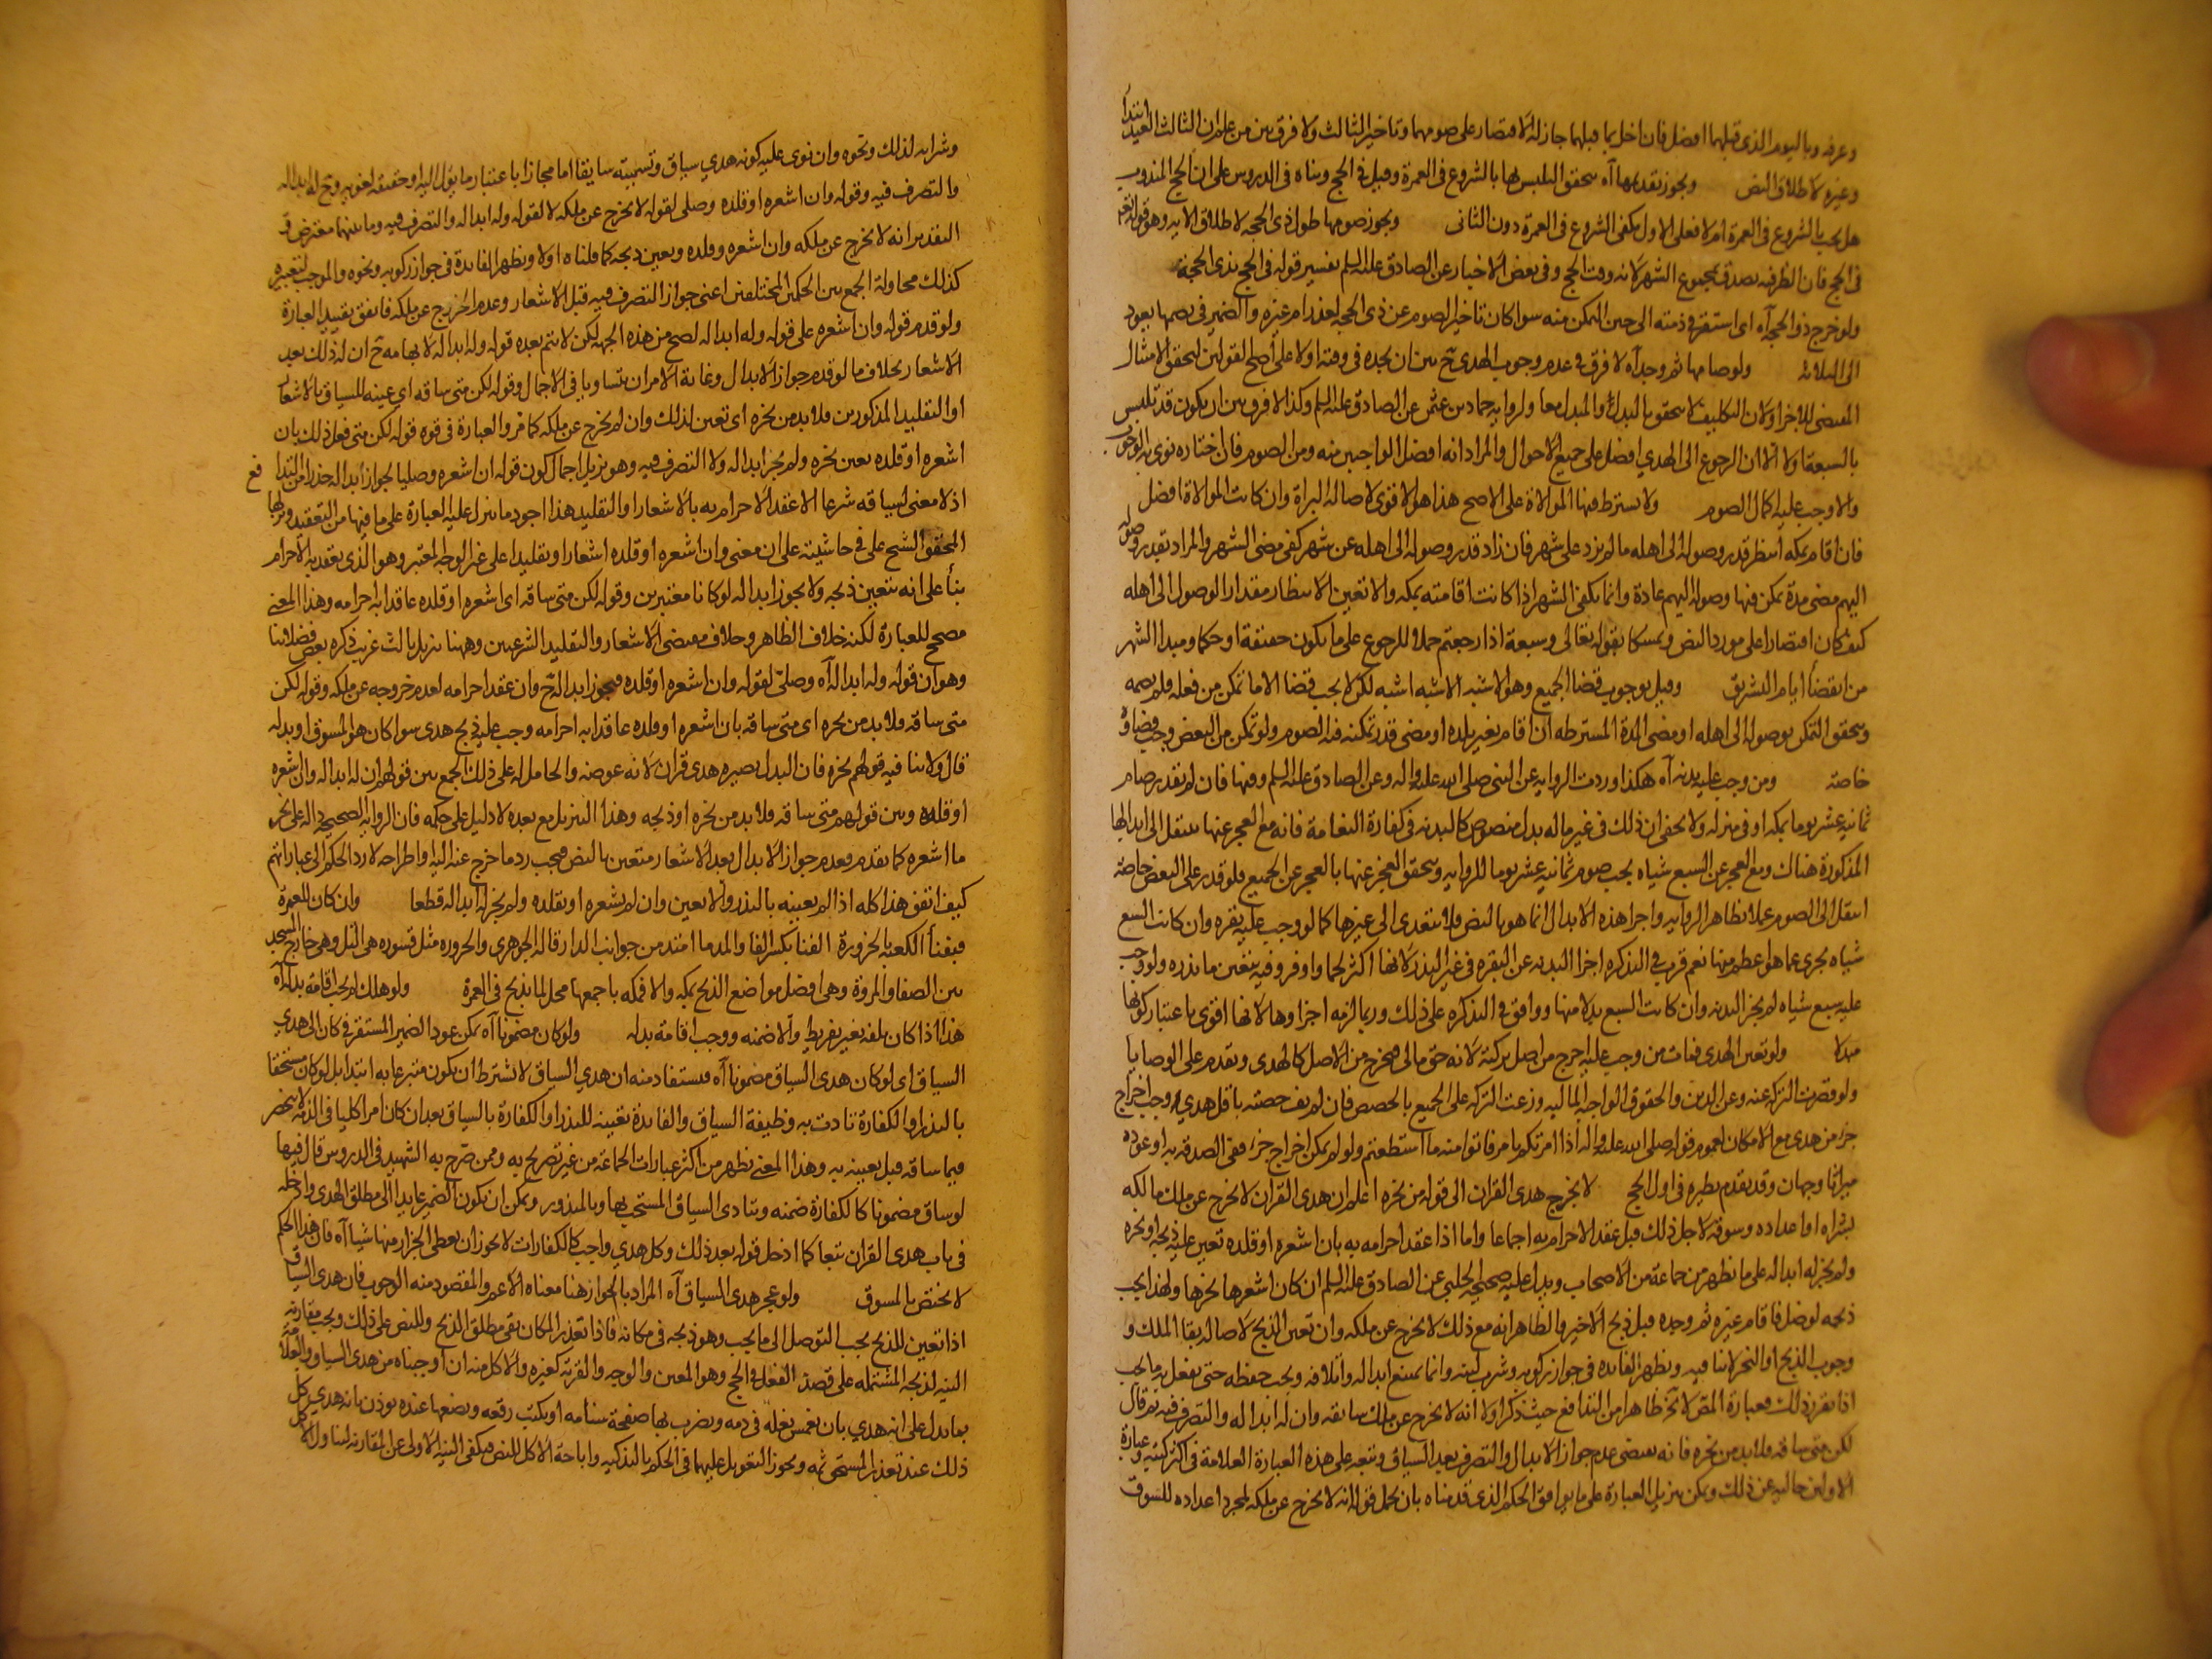 وعرفه وباليوم الذى قبلهما افضل فان اخل بما قبلهما جاز له الاقتصار على صومهما وتاخير الثالث ولا فرق بين من علم ان الثالث العيد ابتدأ
وغيره لاطلاق النص ويجوز تقديمها آه بتحقق التلبس بها بالشروع فى العمرة وقيل فى الحج وبناه فى الدروس على ان الحج المندوب
هل يجب بالشروع فى العمرة ام لا فعلى الاول يكفى الشروع فى العمرة دون الثانى ويجوز صومها طول ذى الحجه لاطلاق الايه وهو قوله تعم
فى الحج فان الظرفيه يصدق بمجموع الشهر لانه وقت الحج وفى بعض الاخبار عن الصادق عليه السلم تفسير قوله فى الحج بذى الحجة
ولو خرج ذو الحجه آه اى استقر فى ذمته الى حين التمكن منه سوا كان تاخير الصوم عن ذى الحجه لعذر ام غيره والضمير فى يصمها يعود
الى الثلاثه ولو صامها ثم وجد آه لا فرق فى عدم وجوب الهدى ح بين ان يجده فى وقته او لا على اصح القولين لتحقق الامتثال
المقتضى للاجزا ولان التكليف لا يتحقق بالبدل والمبدل معا ولروايه حماد بن عثمن عن الصادق عليه السلم وكذا لا فرق بين ان يكون قد تلبس
بالسبعة او لا الا ان الرجوع الى الهدي افضل على جميع الاحوال والمراد انه افضل الواجبين منه ومن الصوم فان اختاره نوى به الوجوب
والا وجب عليه كمال الصوم ولا يشترط فيها الموالاة على الاصح هذا هو الاقوى لاصاله البراة وان كانت الموالاة افضل
فان اقام بمكه انتظر قدر وصوله الى اهله ما لم يزد على شهر فان زاد قدر وصوله الى اهله عن شهر كفى مضى الشهر والمراد بقدر وصوله
اليهم مضى مدة يمكن فيها وصوله اليهم عادة وانما يكفى الشهر اذا كانت اقامته بمكه والا تعين الانتظار مقدار الوصول الى اهله
كيف كان اقتصارا على مورد النص وتمسكا بقوله تعالى وسبعة اذا رجعتم حملا للرجوع على ما يكون حقيقة او حكما ومبدا الشهر
من انقضا ايام التشريق وقيل بوجوب قضا الجميع وهو الاشبه الاشبه اشبه لكن لا يجب قضا الا ما تمكن من فعله فلم يصمه
ويتحقق التمكن بوصوله الى اهله او مضى المدة المشترطه ان اقام بغير بلده او مضى قدر تمكنه فيه الصوم ولو تمكن من البعض وجب قضاؤه
خاصة ومن وجب عليه بدنه آه هكذا وردت الروايه عن النبى صلى الله عليه واله وعن الصادق عليه السلم وفيها فان لم يقدر صام
ثمانيه عشر يوما بمكه او فى منزله ولا يخفى ان ذلك فى غير ماله بدل منصوص كالبدنه فى كفارة النعامة فانه مع العجز عنها ينتقل الى ابدالها
المذكورة هناك ومع العجز عن السبع شياه يجب صوم ثمانيه عشر يوما للروايه ويتحقق العجز عنها بالعجز عن الجميع فلو قدر على البعض خاصة
انتقل الى الصوم عملا بظاهر الروايه واجرا هذه الابدال انما هو بالنص فلا يتعدى الى غيرها كما لو وجب عليه بقره وان كانت السبع
شياه تجزى عما هو اعظم منها نعم قرب فى التذكره اجزا البدنه عن البقره فى غير النذر لانها اكثر لحما واوفر وفيه يتعين ما نذره ولو وجب
عليه سبع شياه لم يجز البدنه وان كانت السبع بدلا منها ووافق فى التذكره على ذلك وربما لزمه اجزاوها لانها اقوى باعتبار كونها
مبدلا ولو تعين الهدى فمات من وجب عليه اخرج من اصل تركته لانه حق مالى فيخرج من الاصل كالهدى ويقدم على الوصايا
ولو قصرت التركه عنه وعن الدين والحقوق الواجبه الماليه وزعت التركه على الجميع بالحصص فان لم تف حصته باقل هدي وجب اخراج
جزء من هدى مع الامكان لعموم قوله صلى الله عليه واله اذا امرتكم بامر فاتوا منه ما استطعتم ولو لم يمكن اخراج جزء ففى الصدقه به او عوده
ميراثا وجهان وقد تقدم نظيره فى اول الحج لا يخرج هدى القران الى قوله من نحره اعلم ان هدى القران لا يخرج عن ملك مالكه
بشراه او اعداده وسوقه لاجل ذلك قبل عقد الاحرام به اجماعا واما اذا عقد احرامه به بان اشعره او قلده تعين عليه ذبحه او نحره
ولم يجز له ابداله على ما يظهر من جماعة من الاصحاب ويدل عليه صحيحه الحلبى عن الصادق عليه السلم ان كان اشعرها نحرها ولهذا يجب
ذبحه لو ضل فاقام غيره ثم وجده قبل ذبح الاخير والظاهر انه مع ذلك لا يخرج عن ملكه وان تعين الذبح لاصاله بقا الملك و
وجوب الذبح او النحر لا ينافيه وتظهر الفائده فى جواز ركوبه وشرب لبنه وانما يمتنع ابداله واتلافه ويجب حفظه حتى يفعل به ما يجب
اذا تقرر ذلك فعبارة المص لا يخ ظاهرا من التدافع حيث ذكر اولا انه لا يخرج عن ملك سائقه وان له ابداله والتصرف فيه ثم قال
لكن متى ساقه فلا بد من نحره فانه يقتضى عدم جواز الابدال والتصرف بعد السياق وتبعه على هذه العبارة العلامة فى اكثر كتبه وعبارة
الاولين خاليه عن ذلك ويمكن تنزيل العبارة على ما يوافق الحكم الذى قدمناه بان يحمل قوله انه لا يخرج عن ملكه لمجرد اعداده للسوق
وشرايه لذلك ونحوه وان نوى عليه كونه هدي سياق وتسميته سايقا اما مجازا باعتبار ما يؤل اليه او حقيقه لغويه وح له ابداله
والتصرف فيه وقوله وان اشعره او قلده وصلى لقوله لا يخرج عن ملكه لا لقوله وله ابداله والتصرف فيه وما بينهما معترض و
التقدير انه لا يخرج عن ملكه وان اشعره وقلده وتعين ذبحه كما قلناه اولا وتظهر الفائدة فى جواز ركوبه ونحوه والموجب لتعبيره
كذلك محاولة الجمع بين الحكمين المختلفين اعنى جواز التصرف فيه قبل الاشعار وعدم الخروج عن ملكه فاتفق تقييد العبارة
ولو قدم قوله وان اشعره على قوله وله ابداله لصح من هذه الجهه لكن لا يتم بعده قوله وله ابداله لايهامه ح ان له ذلك بعد
الاشعار بخلاف ما لو قدم جواز الابدال وغاية الامران يتساويا فى الاجمال وقوله لكن متى ساقه اي عينه للسياق بالاشعار
او التقليد المذكورين فلا بد من نحره اى تعين لذلك وان لم يخرج عن ملكه كما قر والعبارة فى قوه قوله لكن متى فعل ذلك بان
اشعره او قلده تعين نحره ولم يجز ابداله ولا التصرف فيه وهو يزيل اجمال كون قوله ان اشعره وصليا لجواز ابداله حذرا من التدافع
اذ لا معنى لسياقه شرعا الا عقد الاحرام به بالاشعار او التقليد هذا اجود ما ينزل عليه العبارة على ما فيها من التعقيد ونزلها
المحقق الشيخ على فى حاشيته على ان معنى وان اشعره او قلده اشعارا وتقليدا على غير الوجه المعتبر وهو الذى يعقد به الاحرام
بنأ على انه يتعين ذبحه ولا يجوز ابداله لو كانا معتبرين وقوله لكن متى ساقه اى اشعره او قلده عاقدا به احرامه وهذا المعنى
مصحح للعبارة لكنه خلاف الظاهر وخلاف مقتضى الاشعار والتقليد الشرعيين وههنا تنزيل ثالث غريب ذكره بعض فضلائنا
وهو ان قوله وله ابداله آه وصلىّ لقوله وان اشعره او قلده فيجوز ابداله ح وان عقد احرامه لعدم خروجه عن ملكه وقوله لكن
متى ساقه فلا بد من نحره اى متى ساقه بان اشعره او قلده عاقدا به احرامه وجب عليه ذبح هدى سوا كان هو المسوق او بدله
قال ولا ينافيه قولهم نحره فان البدل يصيره هدى قران لانه عوضه والحامل له على ذلك الجمع بين قولهم ان له ابداله وان اشعره
او قلده وبين قولهم متى ساقه فلا بد من نحره او ذبحه وهذا التنزيل مع بعده لا دليل على حكمه فان الروايه الصحيحه داله على نحر
ما اشعره كما تقدم فعدم جواز الابدال بعد الاشعار متعين بالنص فيجب رد ما خرج عنه اليه او اطراحه لا رد الحكم الى عباراتهم
كيف اتفق هذا كله اذا لم يعينه بالنذر والا تعين وان لم يشعره او يقلده ولم يجز له ابداله قطعا وان كان للعمرة
فبفنأ الكعبه بالحزورة الفنا بكسر الفا والمد ما امتد من جوانب الدار قاله الجوهرى والحزوره مثل قسوره هى التل وهى خارج المسجد
بين الصفا والمروة وهى افضل مواضع الذبح بمكه والا فمكه باجمعها محل لما يذبح فى العمرة ولو هلك لم يجب اقامة بدله آه
هذا اذا كان تلفه بغير تفريط والا ضمنه ووجب اقامة بدله ولو كان مضمونا آه يمكن عود الضمير المستقر فى كان الى هدي
السياق اى لو كان هدى السياق مضمونا آه فيستفاد منه ان هدي السياق لا يشترط ان يكون متبرعا به ابتدا بل لو كان مستحقا
بالنذر او الكفارة تادت به وظيفة السياق والفائدة تعيينه للنذر او الكفارة بالسياق بعد ان كان امرا كليا فى الذمه لا ينحصر
فيما ساقه قبل تعيينه به وهذا المعنى يظهر من اكثر عبارات الجماعة من غير تصريح به وممن صرّح به الشهيد فى الدروس قال فيها
لو ساق مضمونا كالكفارة ضمنه ويتادى السياق المستحب بها وبالمنذور ويمكن ان يكون الضمير عايدا الى مطلق الهدى وادخله
فى باب هدى القران تبعا كما ادخل قوله بعد ذلك وكل هدي واجب كالكفارات لا يجوز ان يعطى الجزار منها شيا آه فان هذا الحكم
لا يختص بالمسوق ولو عجز هدى السياق آه المراد بالجواز هنا معناه الاعم والمقصود منه الوجوب فان هدى السياق
اذا تعين للذبح يجب التوصل الى ما يجب وهو ذبحه فى مكانه فاذا تعذر المكان بقى مطلق الذبح وللنص على ذلك ويجب مقارنه
النيه لذبحه المشتمله على قصد الفعل فى الحج وهو المعين والوجه والقربه كغيره والاكل منه ان اوجبناه من هدى السياق والعلامه
بما يدل على انه هدي بان يغمس نعله فى دمه ويضرب بها صفحة سنامه او يكتب رقعه ويضعها عنده يؤذن بانه هدي كل
ذلك عند تعذر المستحق ثمه ويجوز التعويل عليهما فى الحكم بالتذكيه واباحة الاكل للنص فيكفى النيه الاولى عن المقارنه لتناول الاكل